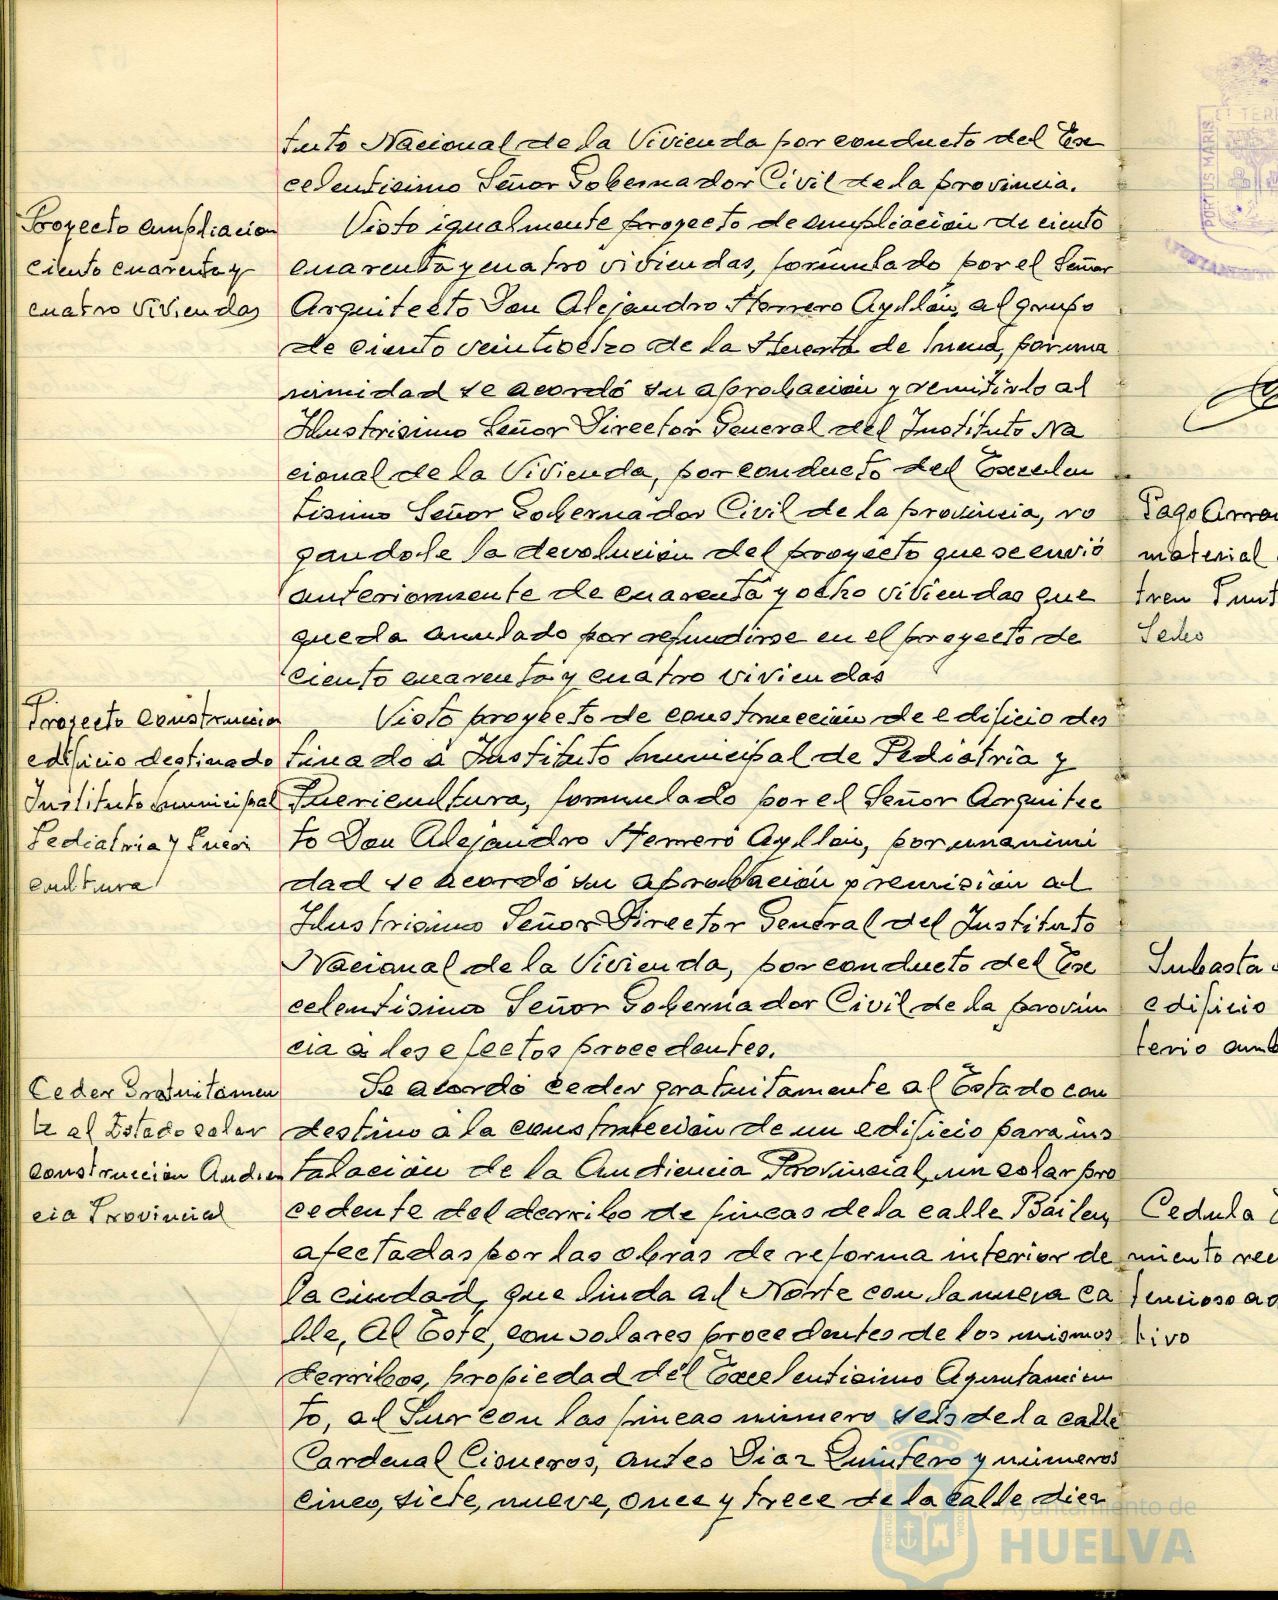 tuto Nacional de la Vivienda por conducto del Ex
celentisimo Señor Gobernador Civil de la provincia.
Proyecto ampliacion
ciento cuarenta y
cuatro viviendas
Visto igualmente proyecto de ampliación de ciento
cuarenta y cuatro viviendas, formulado por el Señor
Arquitecto Don Alejandro Herrero Ayllón, al grupo
de ciento veintiocho de la Huerta de Mena, por una
nimidad se acordó su aprobación y remitirlo al
Ilustrisimo Señor Director General del Instituto Na
cional de la Vivienda, por conducto del Excelen
tisimo Señor Gobernador Civil de la provincia, ro
gandole la devolución del proyecto que se envió
anteriormente de cuarenta y ocho viviendas que
queda anulado por refundirse en el proyecto de
ciento cuarenta y cuatro viviendas
Proyecto construccion
edificio destinado
Instituto Municipal
Pediatria y Pueri
cultura
Visto proyecto de construcción de edificio des
tinado á Instituto Municipal de Pediatría y
Puericultura, formulado por el Señor Arquitec
to Don Alejandro Herrero Ayllón, por unanimi
dad se acordó su aprobación y remisión al
Ilustrisimo Señor Director General del Instituto
Nacional de la Vivienda, por conducto del Ex
celentisimo Señor Gobernador Civil de la provin
cia á los efectos procedentes.
Ceder Gratuitamen
te al Estado solar
construcción Audien
cia Provincial
Se acordó ceder gratuitamente al Estado con
destino á la construcción de un edificio para ins
talación de la Audiencia Provincial, un solar pro
cedente del derribo de fincas de la calle Bailen,
afectadas por las obras de reforma interior de
la ciudad, que linda al Norte con la nueva ca
lle, Al Este, con solares procedentes de los mismos
derribos, propiedad del Excelentisimo Ayuntamien
to, al Sur con las fincas número seis de la calle
Cardenal Cisneros, antes Diaz Quintero y números
cinco, siete, nueve, once y trece de la calle diez
PORTUS MARIS
Pago
material
tren
Subasta
edificio
terio
Cedula
miento
tencioso
tivo
Ayuntamiento de
HUELVA